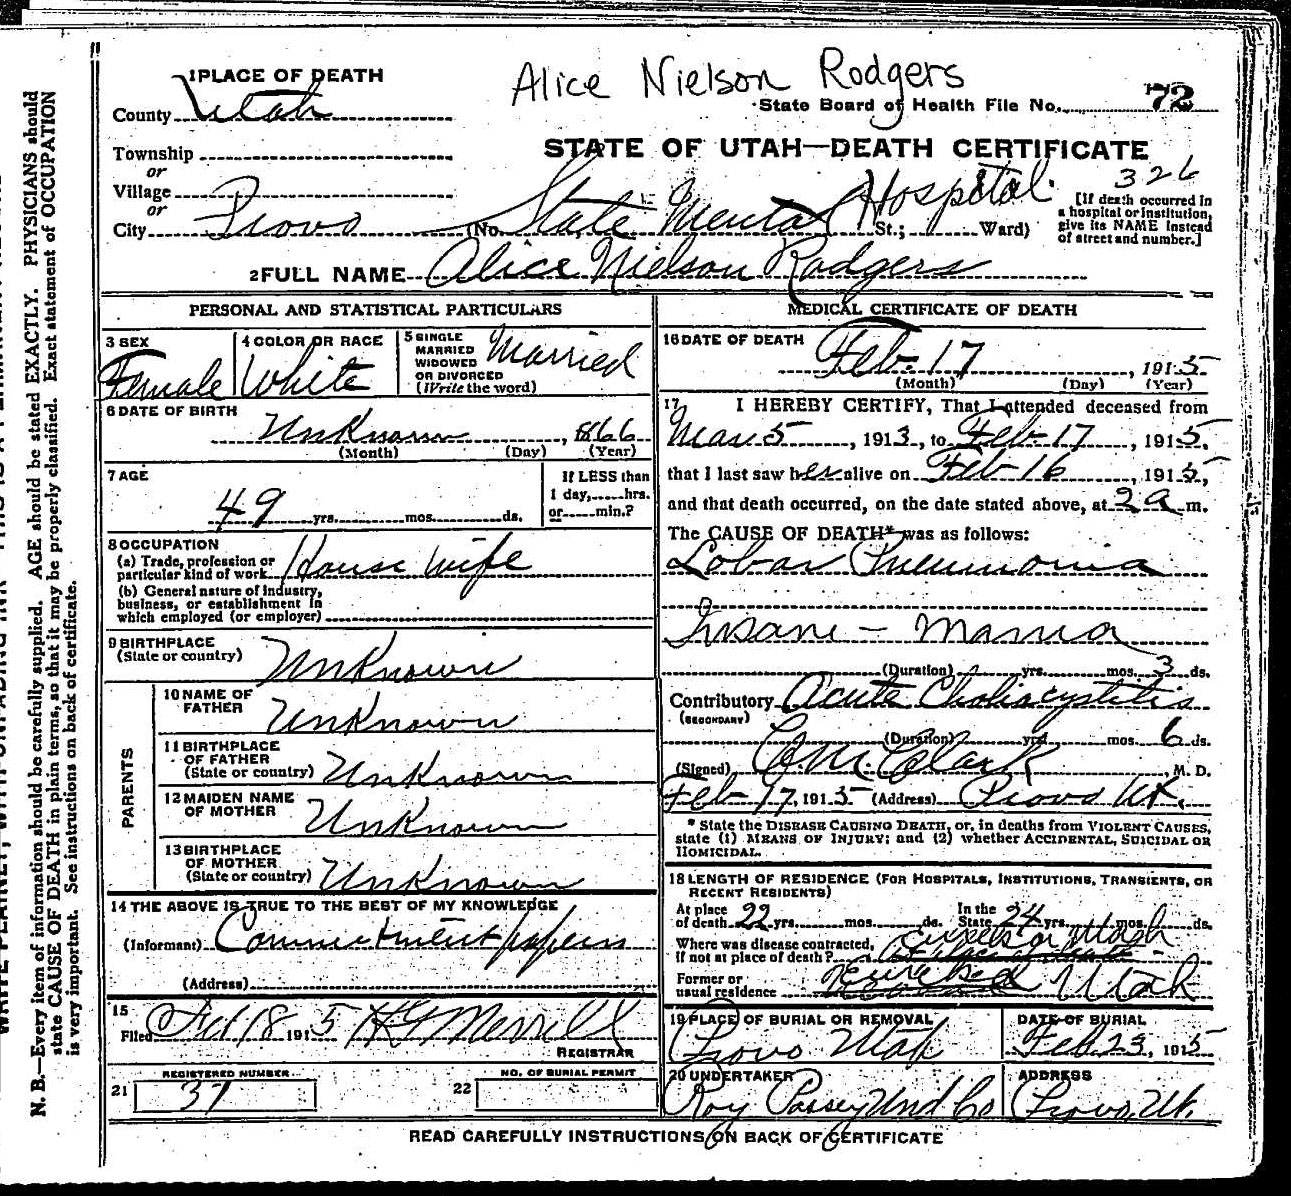 Alice Nielson Rodgers
1 PLACE OF DEATH
County Utah
State Board of Health File No. 72
Township
or
Village
or
City Provo (No. State Mental Hospital St.; Ward)
STATE OF UTAH—DEATH CERTIFICATE
326
[If death occurred in
a hospital or institution,
give its NAME instead
of street and number.]
2 FULL NAME Alice Nielson Rodgers
PERSONAL AND STATISTICAL PARTICULARS
3 SEX
Female
4 COLOR OR RACE
White
5 SINGLE
MARRIED
WIDOWED
OR DIVORCED
(Write the word)
Married
6 DATE OF BIRTH
UnKnown, 1866
(Month) (Day) (Year)
7 AGE
49 yrs. mos. ds.
If LESS than
1 day, hrs.
or min.?
8 OCCUPATION
(a) Trade, profession or
particular kind of work House Wife
(b) General nature of industry,
business, or establishment in
which employed (or employer)
9 BIRTHPLACE
(State or country) UnKnown
PARENTS
10 NAME OF
FATHER UnKnown
11 BIRTHPLACE
OF FATHER
(State or country) UnKnown
12 MAIDEN NAME
OF MOTHER UnKnown
13 BIRTHPLACE
OF MOTHER
(State or country) UnKnown
14 THE ABOVE IS TRUE TO THE BEST OF MY KNOWLEDGE
(Informant) Commitment papers
(Address)
15
Filed 18 1915 Merrill
REGISTRAR
REGISTERED NUMBER
21 37
NO. OF BURIAL PERMIT
22
MEDICAL CERTIFICATE OF DEATH
16 DATE OF DEATH
Feb-17, 1915
(Month) (Day) (Year)
17 I HEREBY CERTIFY, That I attended deceased from
Mar 5, 1913, to Feb-17, 1915,
that I last saw her alive on Feb-16, 1915,
and that death occurred, on the date stated above, at 2 a m.
The CAUSE OF DEATH* was as follows:
Lobar Pneumonia
Insane - Mania
(Duration) yrs. mos. 3 ds.
Contributory Acute Choliacystitis
(SECONDARY)
(Duration) yrs. mos. 6 ds.
(Signed) Clark, M. D.
Feb-17, 1915 (Address) Provo Ut.
* State the DISEASE CAUSING DEATH, or, in deaths from VIOLENT CAUSES,
state (1) MEANS OF INJURY; and (2) whether ACCIDENTAL, SUICIDAL OR
HOMICIDAL.
18 LENGTH OF RESIDENCE (FOR HOSPITALS, INSTITUTIONS, TRANSIENTS, OR
RECENT RESIDENTS)
At place
of death 22 yrs. mos. ds.
In the
State 24 yrs. mos. ds.
Where was disease contracted,
If not at place of death?
Former or
usual residence Utah
19 PLACE OF BURIAL OR REMOVAL
Provo Utah
DATE OF BURIAL
Feb 23, 1915
20 UNDERTAKER
Roy Passey Und Co
ADDRESS
Provo, Ut.
READ CAREFULLY INSTRUCTIONS ON BACK OF CERTIFICATE
N. B.—Every item of information should be carefully supplied. AGE should be stated EXACTLY. PHYSICIANS should
state CAUSE OF DEATH in plain terms, so that it may be properly classified. Exact statement of OCCUPATION
is very important. See instructions on back of certificate.